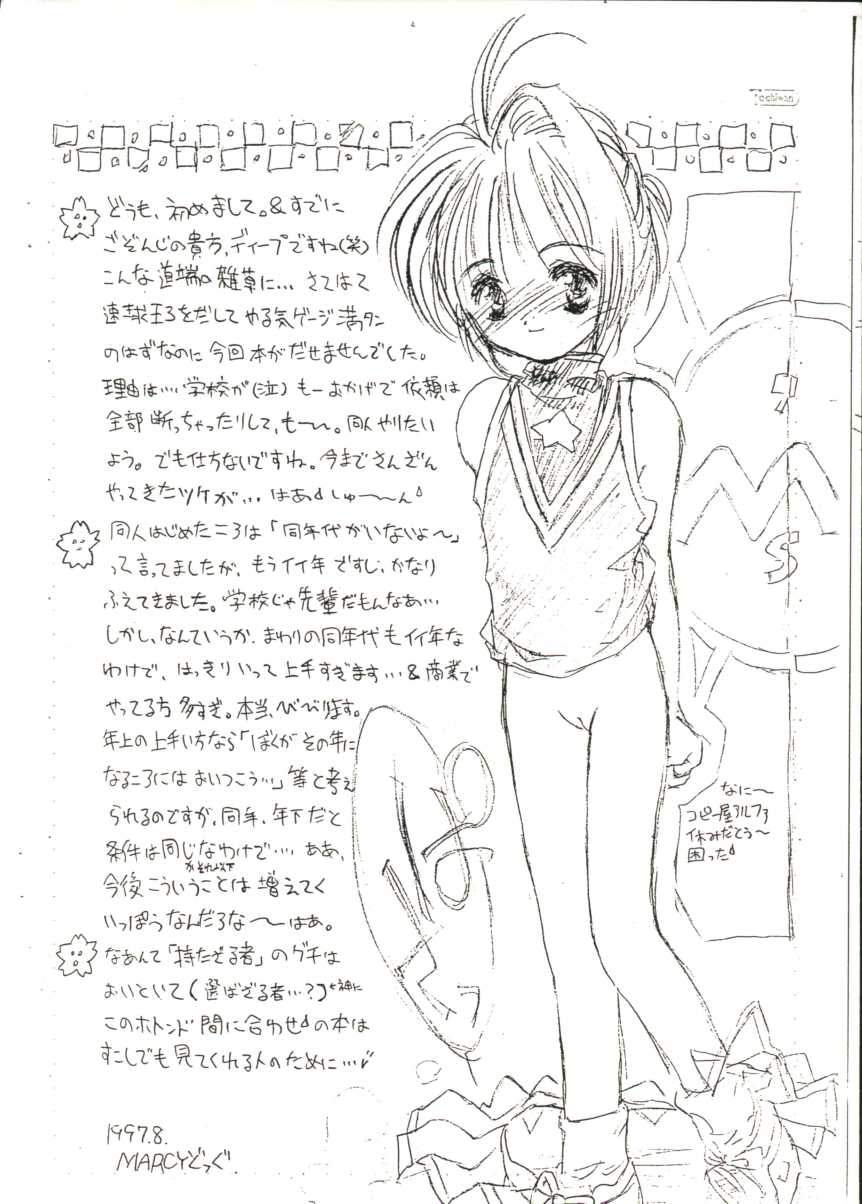 どうも、初めまして。&すでに
ごぞんじの貴方、ディープですね(笑)
こんな道端の雑草に… さてはて
連球王3をだして やる気ゲージ満タン
のはずなのに今回本がだせませんでした。
理由は…学校が(泣) もーおかげで依頼は
全部断っちゃったりして、も〜〜。同人やりたい
よう。でも仕ちないですね。今までさんざん
やってきたツケが… はあ しゅ〜〜ん
同人はじめたころは「同年代がいないよ〜」
って言ってましたが、もうイイ年ですし、かなり
ふえてきました。学校じゃ先輩だもんなあ…
しかし、なんていうか、まわりの同年代もイイ年な
わけで、はっきりいって上手すぎます…&商業で
やってる方多すぎ。本当、びびります。
年上の上手い方なら「ぼくがその年に
なるころにはおいつこう…」等と考え
られるのですが、同年、年下だと
条件は同じなわけで… ああ、
かそれ以下
今後こういうことは増えてく
いっぽうなんだろな〜はあ。
なあんて「持たざる者」のグチは
おいといて(選ばざる者…?) 神に
このホトンド間に合わせの本は
すこしでも見てくれる人のために…♪
1997.8.
MARCYどっぐ
なに〜
コピー屋アルファ
休みだとう〜
困った